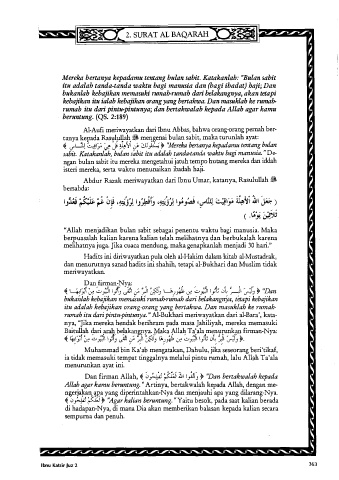 2. SURAT AL BAQARAH
Mereka bertanya kepadamu tentang bulan sabit. Katakanlah: "Bulan sabit
itu adalah tanda-tanda waktu bagi manusia dan (bagi ibadat) haji; Dan
bukanlah kebajikan memasuki rumah-rumah dari belakangnya, akan tetapi
kebajikan itu ialah kebajikan orang yang bertakwa. Dan masuklah ke rumah-
rumah itu dari pintu-pintunya; dan bertakwalah kepada Allah agar kamu
beruntung. (QS. 2:189)
Al-Aufi meriwayatkan dari Ibnu Abbas, bahwa orang-orang pernah ber-
tanya kepada Rasulullah ﷺ mengenai bulan sabit, maka turunlah ayat:
﴿ يَسْأَلُونَكَ عَنِ الْأَهِلَّةِ قُلْ هِيَ مَوَاقِيتُ لِلنَّاسِ ﴾ "Mereka bertanya kepadamu tentang bulan
sabit. Katakanlah, bulan sabit itu adalah tanda-tanda waktu bagi manusia." De-
ngan bulan sabit itu mereka mengetahui jatuh tempo hutang mereka dan iddah
isteri mereka, serta waktu menunaikan ibadah haji.
Abdur Razak meriwayatkan dari Ibnu Umar, katanya, Rasulullah ﷺ
bersabda:
( جَعَلَ اللهُ الْأَهِلَّةَ مَوَاقِيتَ لِلنَّاسِ، فَصُومُوا لِرُؤْيَتِهِ، وَأَفْطِرُوا لِرُؤْيَتِهِ، فَإِنْ غُمَّ عَلَيْكُمْ فَعُدُّوا
ثَلَاثِينَ يَوْمًا. )
"Allah menjadikan bulan sabit sebagai penentu waktu bagi manusia. Maka
berpuasalah kalian karena kalian telah melihatnya dan berbukalah karena
melihatnya juga. Jika cuaca mendung, maka genapkanlah menjadi 30 hari."
Hadits ini diriwayatkan pula oleh al-Hakim dalam kitab al-Mustadrak,
dan menurutnya sanad hadits ini shahih, tetapi al-Bukhari dan Muslim tidak
meriwayatkan.
Dan firman-Nya:
﴿ وَلَيْسَ الْبِرُّ بِأَن تَأْتُوا الْبُيُوتَ مِن ظُهُورِهَا وَلَكِنَّ الْبِرَّ مَنِ اتَّقَى وَأْتُوا الْبُيُوتَ مِنْ أَبْوَابِهَا ﴾ "Dan
bukanlah kebajikan memasuki rumah-rumah dari belakangnya, tetapi kebajikan
itu adalah kebajikan orang-orang yang bertakwa. Dan masuklah ke rumah-
rumah itu dari pintu-pintunya." Al-Bukhari meriwayatkan dari al-Bara', kata-
nya, "Jika mereka hendak berihram pada masa Jahiliyah, mereka memasuki
Baitullah dari arah belakangnya. Maka Allah Ta'ala menurunkan firman-Nya:
﴿ وَلَيْسَ الْبِرُّ بِأَن تَأْتُوا الْبُيُوتَ مِن ظُهُورِهَا وَلَكِنَّ الْبِرَّ مَنِ اتَّقَى وَأْتُوا الْبُيُوتَ مِنْ أَبْوَابِهَا ﴾.
Muhammad bin Ka'ab mengatakan, Dahulu, jika seseorang beri'tikaf,
ia tidak memasuki tempat tinggalnya melalui pintu rumah, lalu Allah Ta'ala
menurunkan ayat ini.
Dan firman Allah, ﴿ وَاتَّقُوا اللهَ لَعَلَّكُمْ تُفْلِحُونَ ﴾ "Dan bertakwalah kepada
Allah agar kamu beruntung." Artinya, bertakwalah kepada Allah, dengan me-
ngerjakan apa yang diperintahkan-Nya dan menjauhi apa yang dilarang-Nya.
﴿ لَعَلَّكُمْ تُفْلِحُونَ ﴾ "Agar kalian beruntung." Yaitu besok, pada saat kalian berada
di hadapan-Nya, di mana Dia akan memberikan balasan kepada kalian secara
sempurna dan penuh.
Ibnu Katsir Juz 2
363